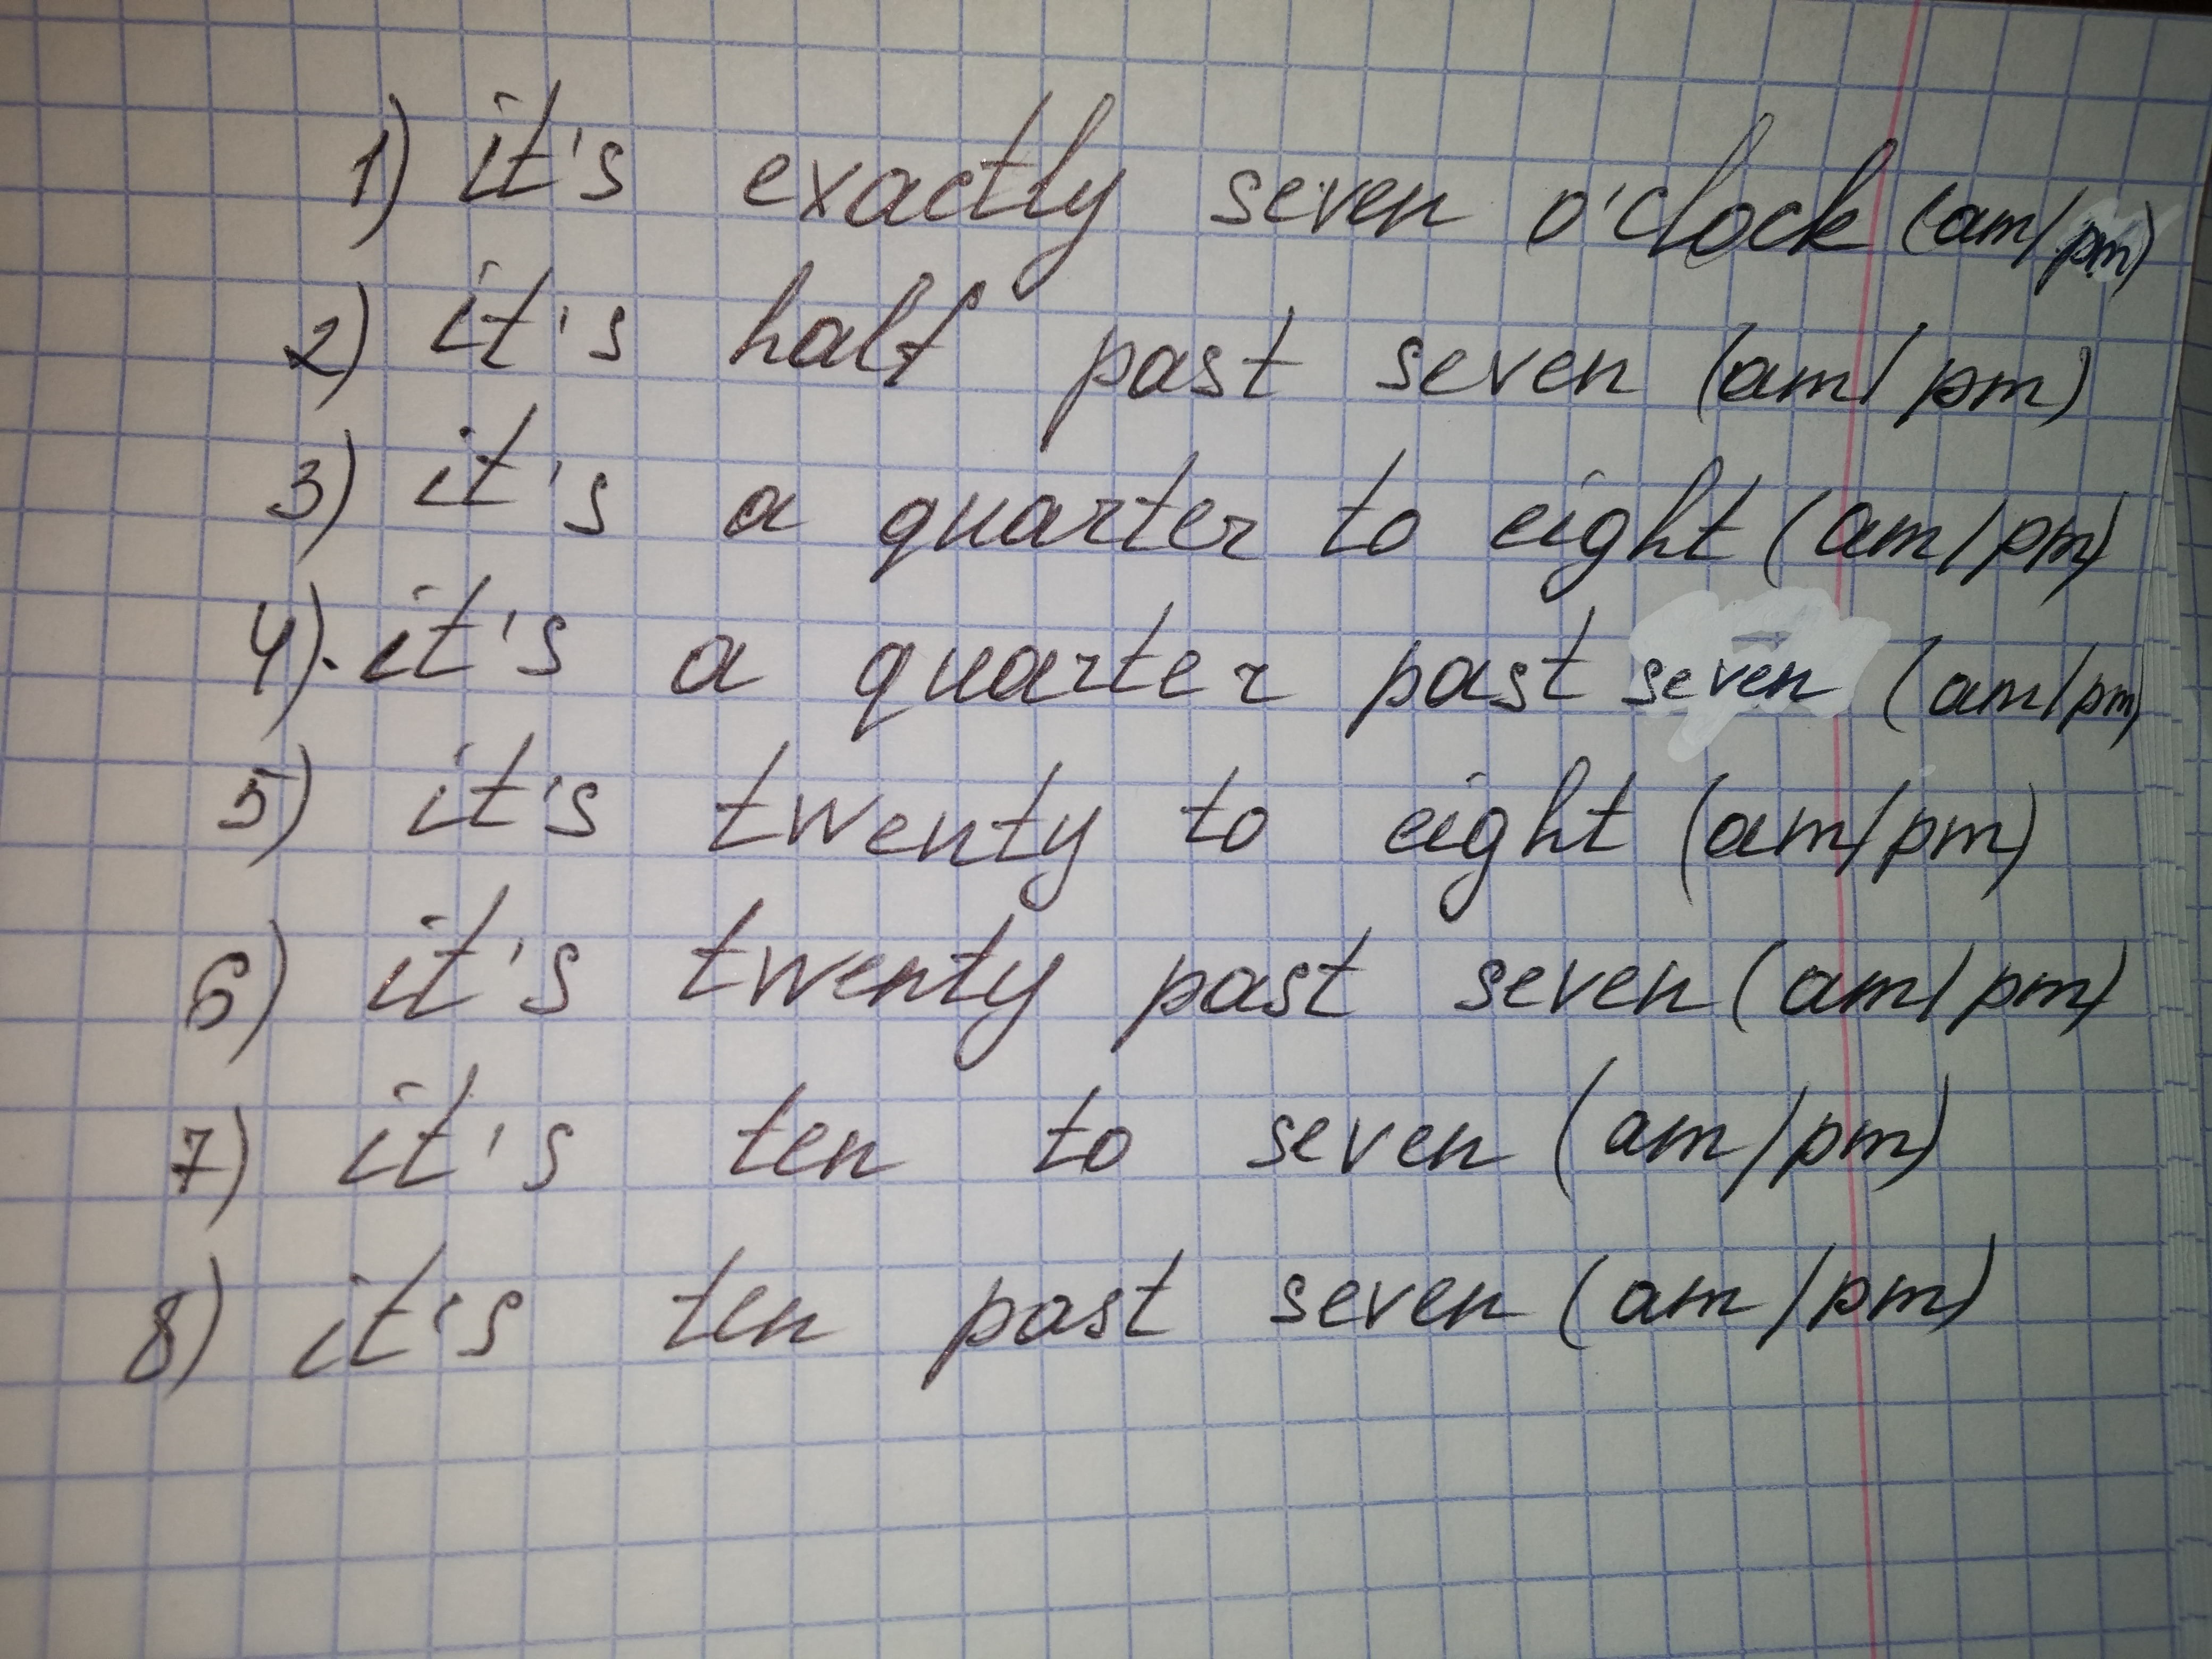 1) it's exactly seven o'clock (am/pm)
2) it's half past seven (am/pm)
3) it's a quarter to eight (am/pm)
4). it's a quarter past seven (am/pm)
5) it's twenty to eight (am/pm)
6) it's twenty past seven (am/pm)
7) it's ten to seven (am/pm)
8) it's ten past seven (am/pm)